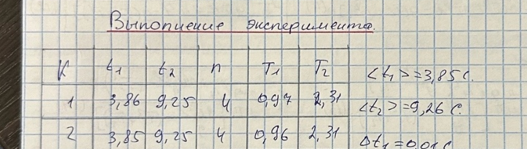 Выполнение эксперимента
K t₁ t₂ n T₁ T₂
1 3,86 9,25 4 0,97 2,31
2 3,85 9,25 4 0,96 2,31
<t₁> = 3,85 с.
<t₂> = 9,26 с.
Δt₁ = 0,01 с